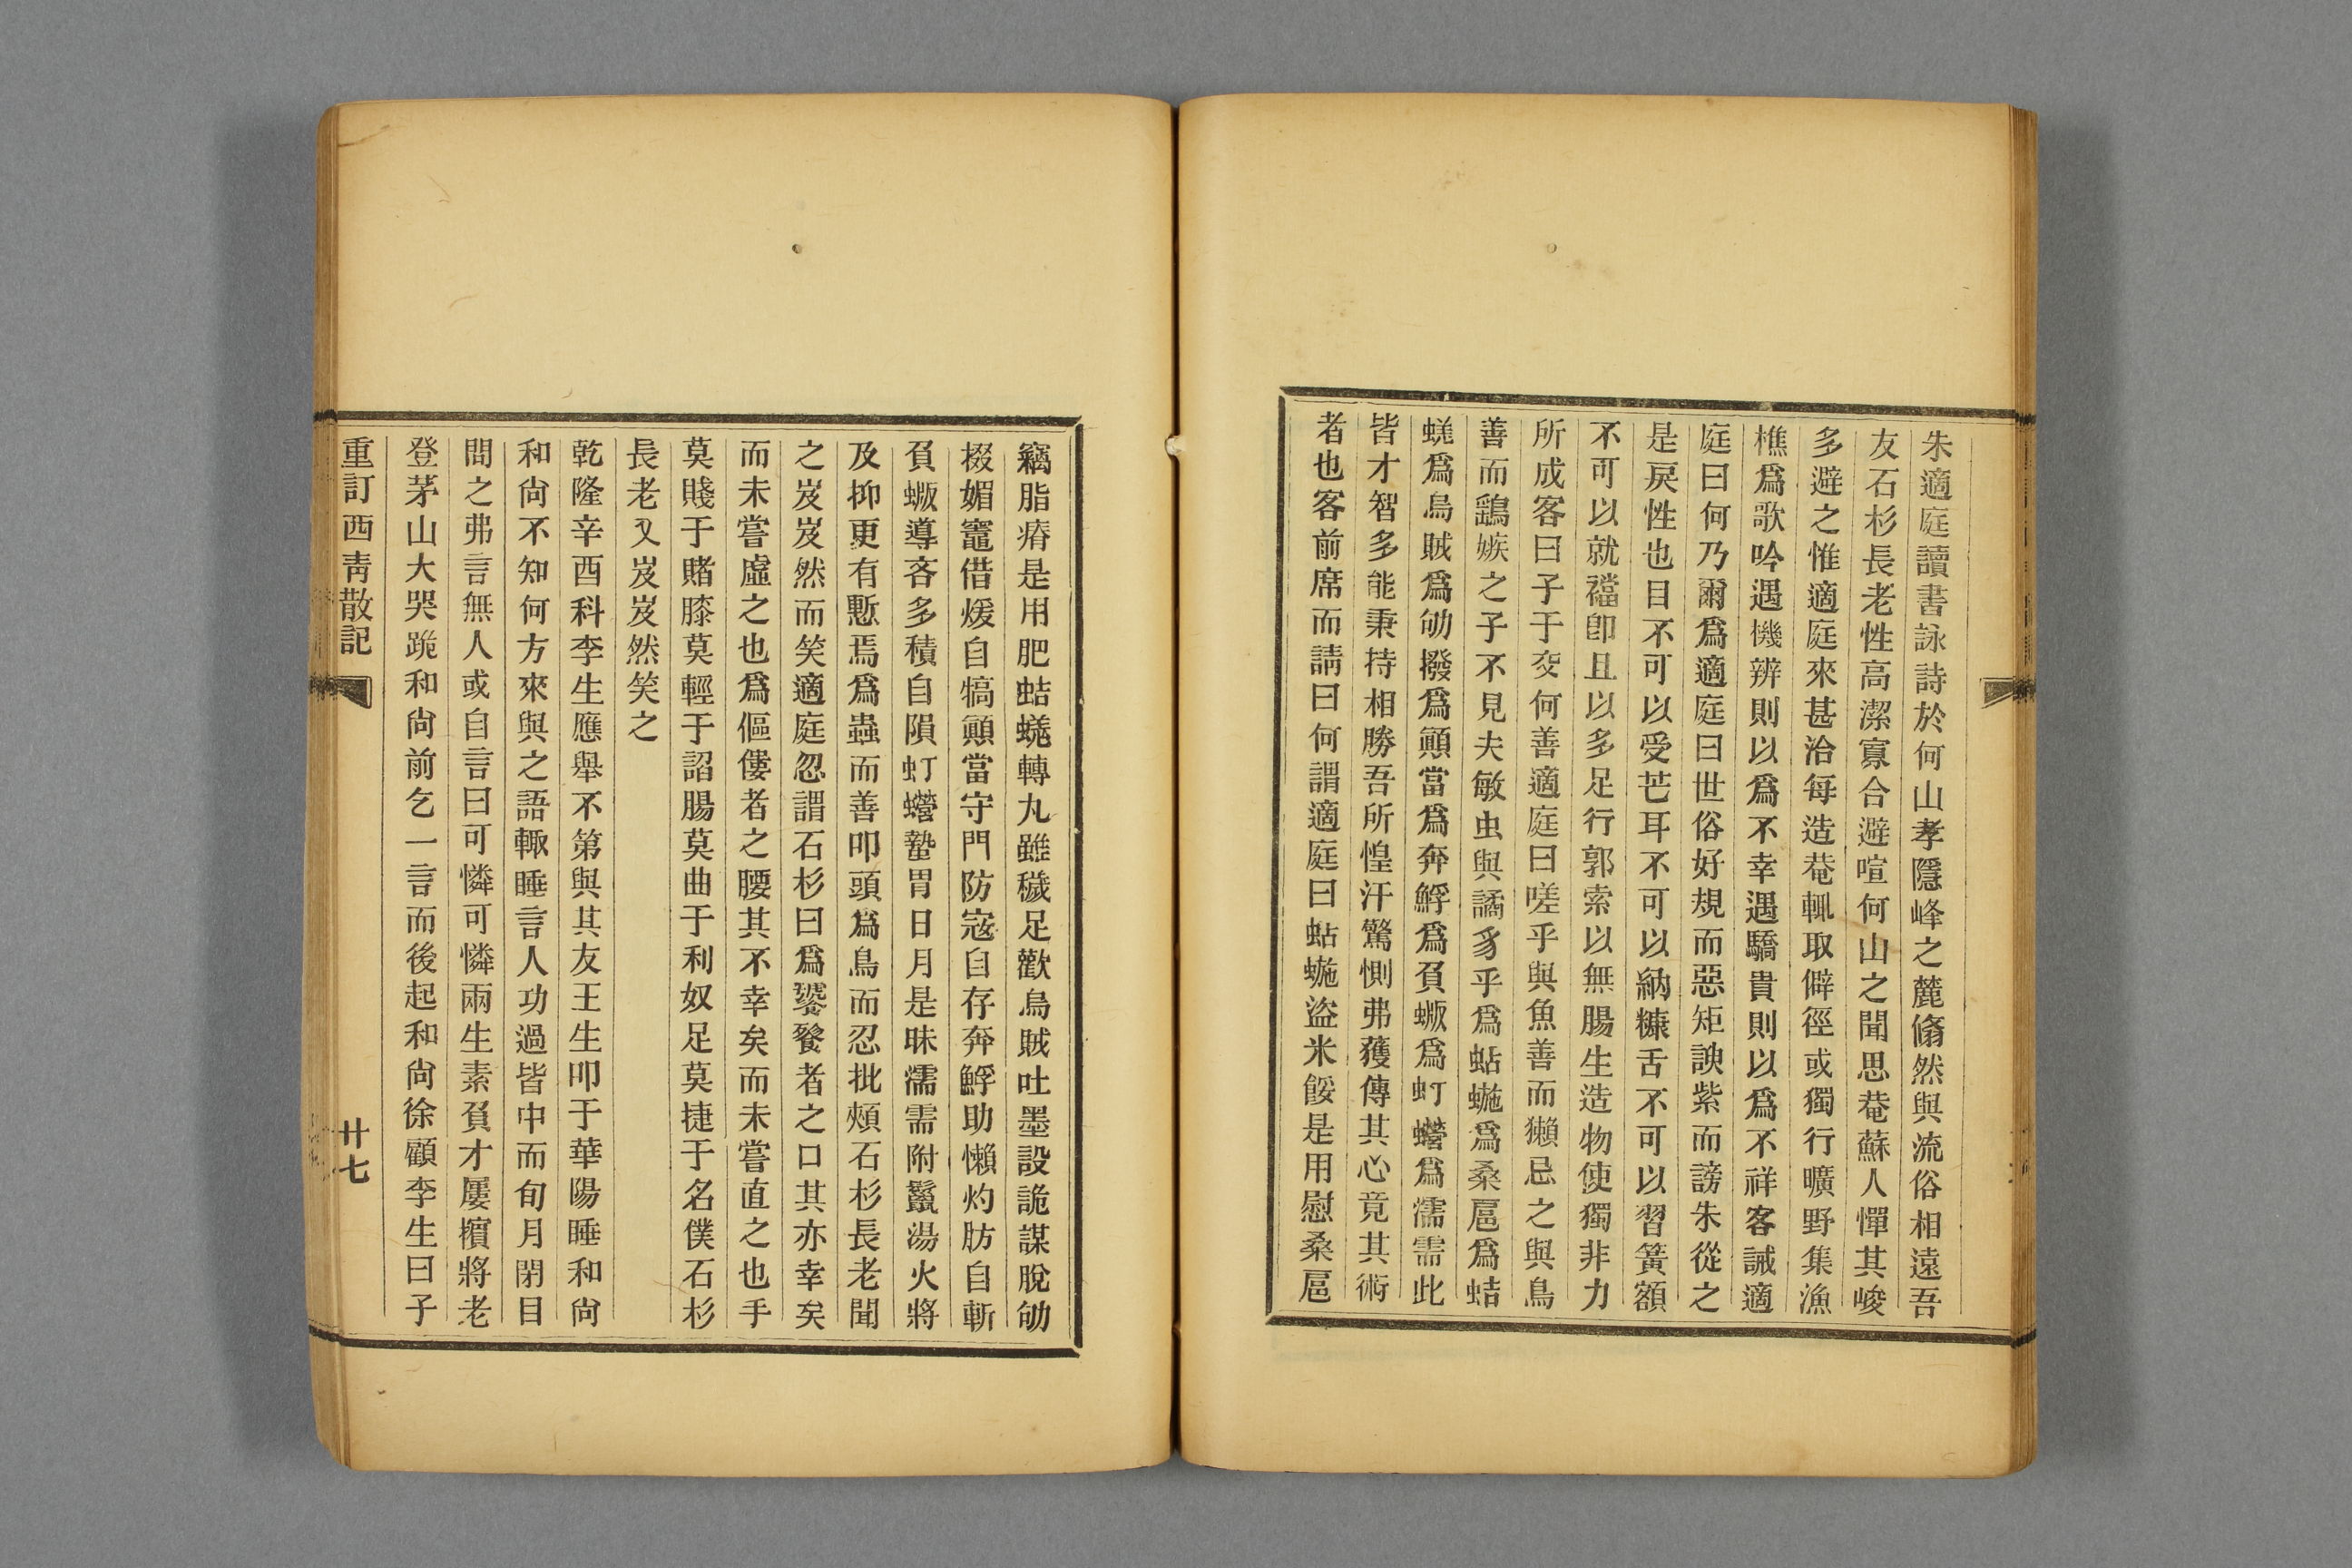 朱適庭讀書詠詩於何山孝隱峰之麓翛然與流俗相遠吾
友石杉長老性高潔寡合避喧何山之聞思菴蘇人憚其峻
多避之惟適庭來甚洽每造菴輒取僻徑或獨行曠野集漁
樵爲歌吟遇機辨則以爲不幸遇驕貴則以爲不祥客誡適
庭曰何乃爾爲適庭曰世俗好規而惡矩諛紫而謗朱從之
是戾性也目不可以受芒耳不可以納糠舌不可以習簧額
不可以就襠卽且以多足行郭索以無腸生造物使獨非力
所成客曰子于交何善適庭曰嗟乎與魚善而獺忌之與鳥
善而鷂嫉之子不見夫敏虫與譎豸乎爲蛅蝂爲桑扈爲蛣
蜣爲烏賊爲䖧撥爲顚當爲奔䱐爲負蠍爲虰蠑爲濡需此
皆才智多能秉持相勝吾所惶汗驚惻弗獲傳其心竟其術
者也客前席而請曰何謂適庭曰蛅䗐盜米餒是用慰桑扈
竊脂瘠是用肥蛣蜣轉丸雖穢足歡烏賊吐墨設詭謀脫䖧
掇媚竈借煖自犒顚當守門防寇自存奔䱐助懶灼肪自斬
負蠍導吝多積自隕虰蠑蟄胃日月是昧濡需附鬣湯火將
及抑更有慙焉爲蟲而善叩頭爲鳥而忍批頰石杉長老聞
之岌岌然而笑適庭忽謂石杉曰爲饕餮者之口其亦幸矣
而未嘗虛之也爲傴僂者之腰其不幸矣而未嘗直之也手
莫賤于賭膝莫輕于諂腸莫曲于利奴足莫捷于名僕石杉
長老又岌岌然笑之
乾隆辛酉科李生應舉不第與其友王生叩于華陽睡和尙
和尙不知何方來與之語輙睡言人功過皆中而旬月閉目
問之弗言無人或自言曰可憐可憐兩生素負才屢擯將老
登茅山大哭跪和尙前乞一言而後起和尙徐顧李生曰子
重訂西靑散記
廿七